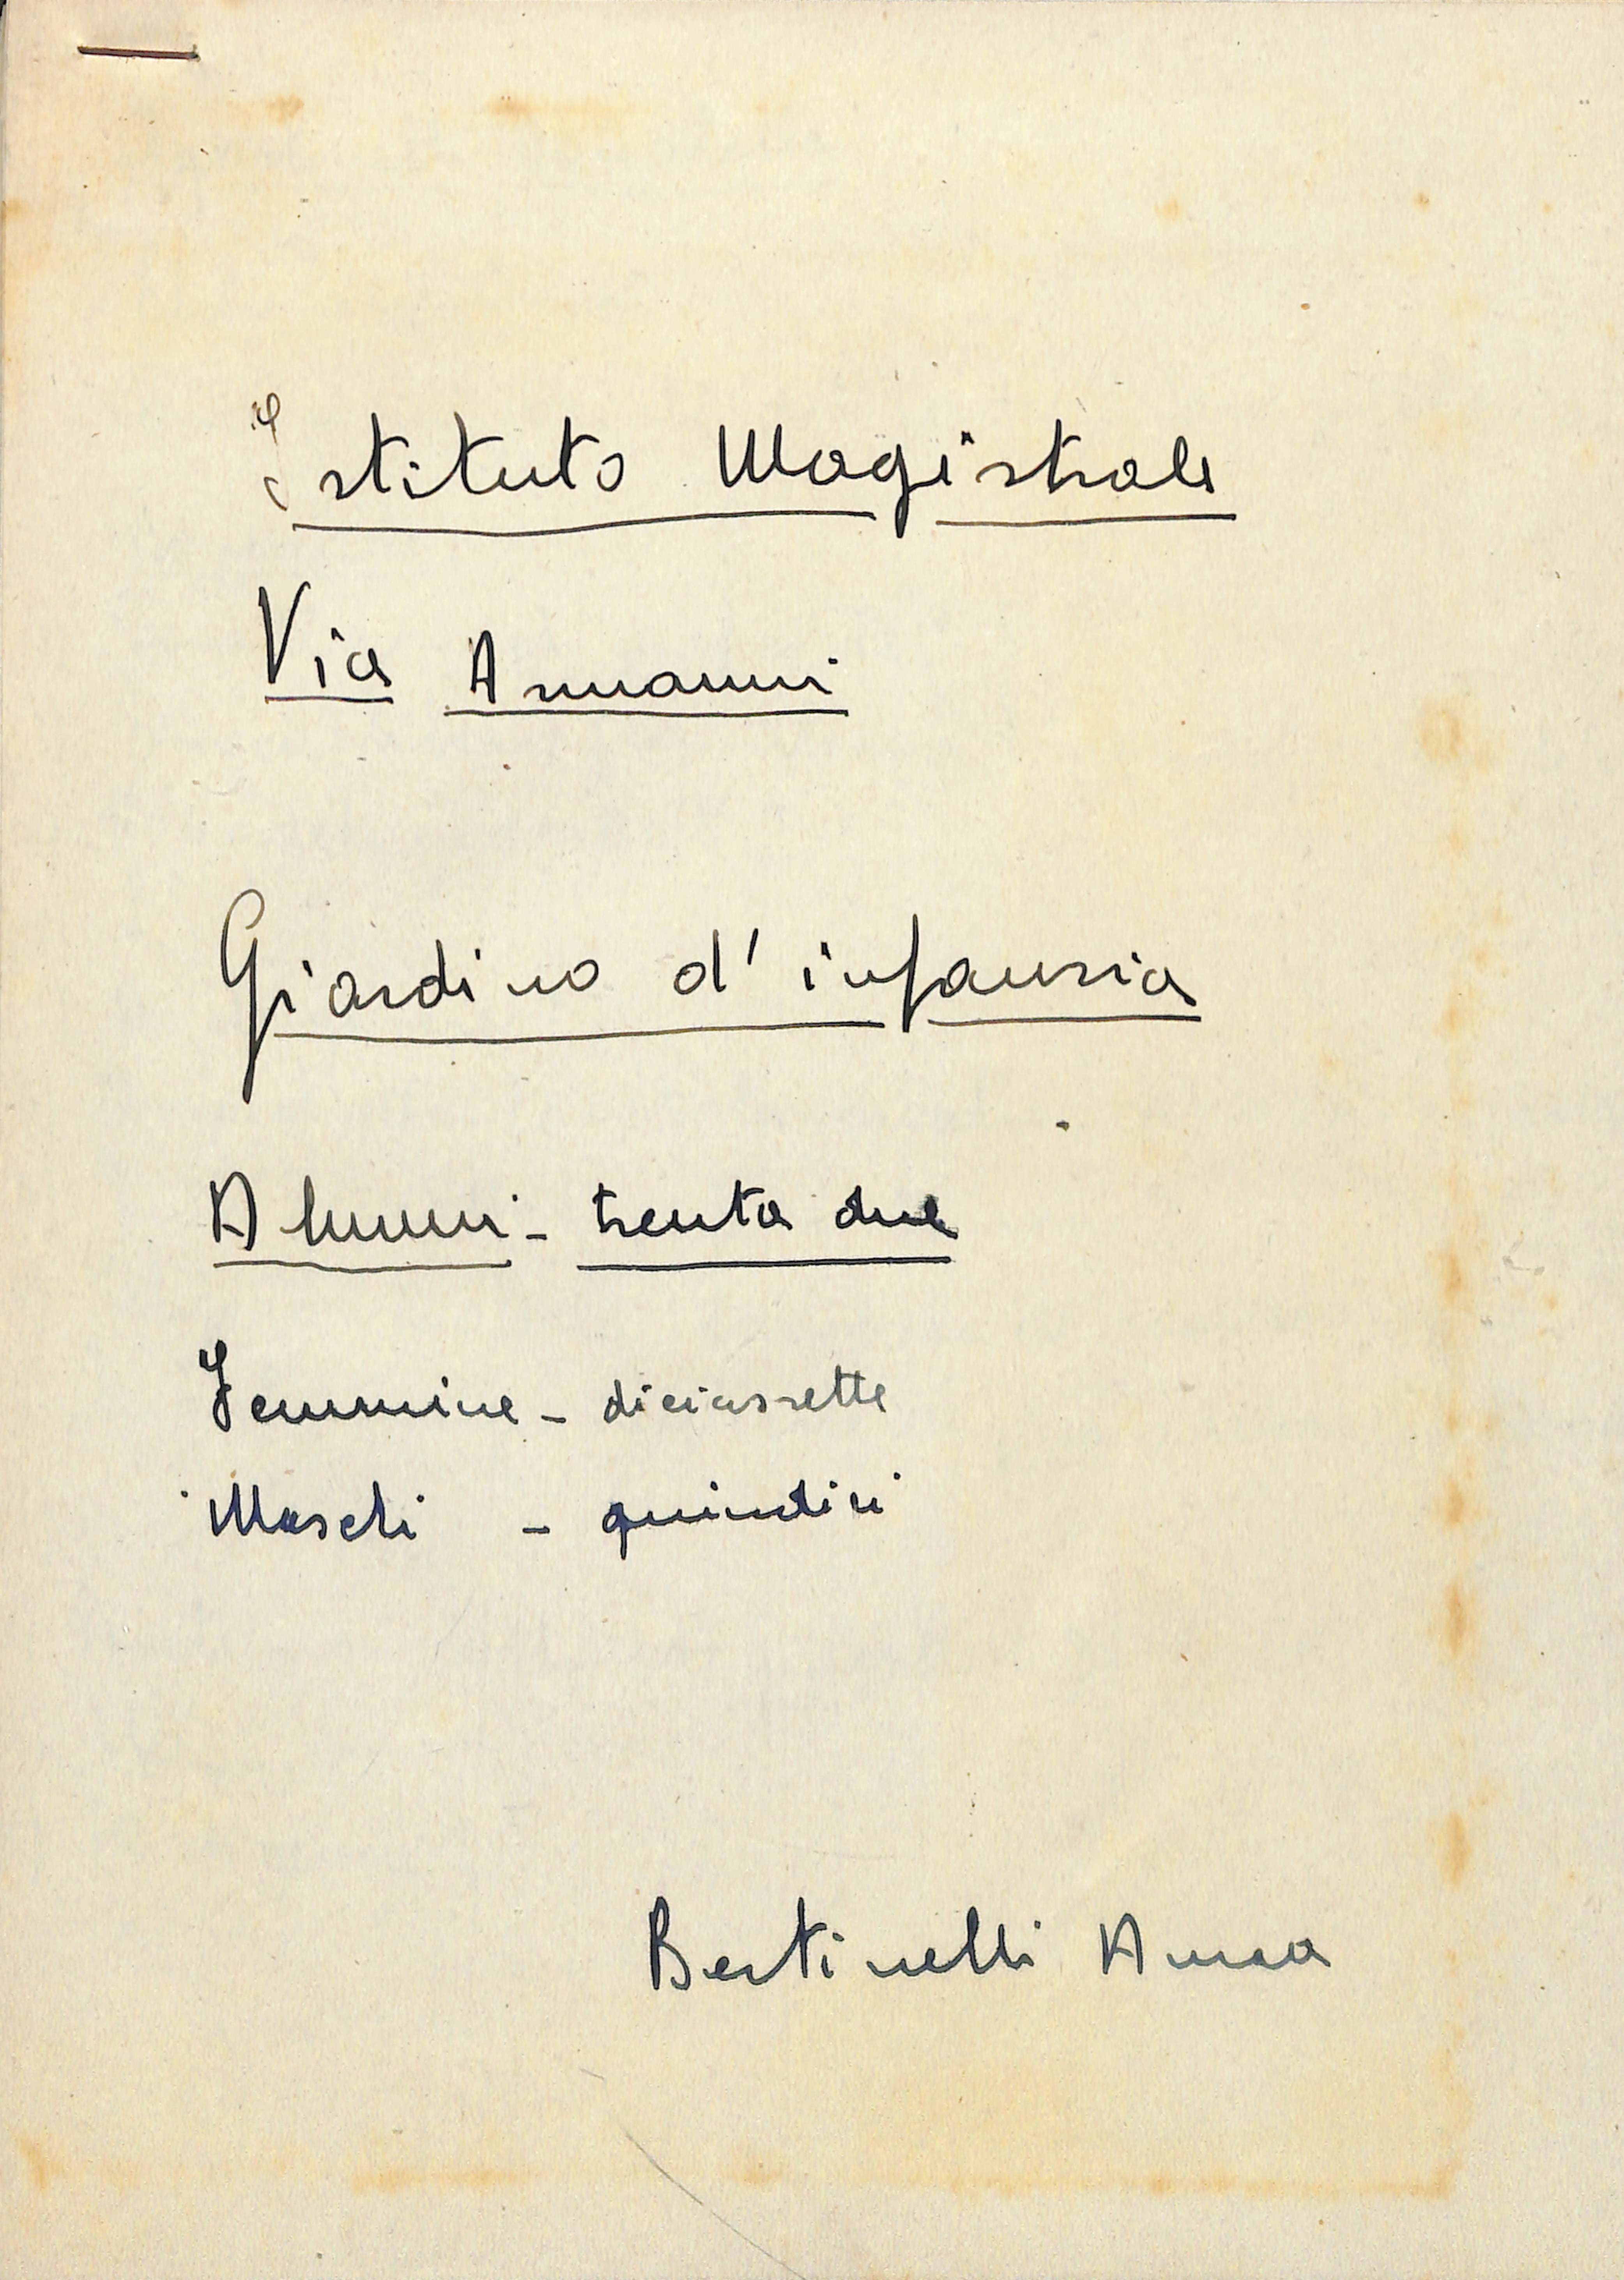 Istituto Magistrale
Via Armanni
Giardino d' infanzia
Alunni - trenta due
Femmine - diciassette
Maschi - quindici
Bertinelli Anna